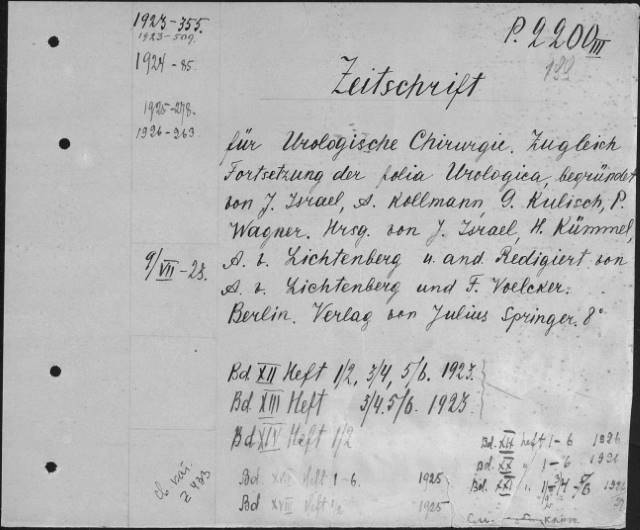 1923-355.
1923-509.
1924-85
1925-278.
1926-263
9/VII-23.
P. 2200 III
Zeitschrift
für Urologische Chirurgie. Zugleich
Fortsetzung der folia Urologica, begründet
von J. Israel, A. Kollmann, G. Kulisch, P.
Wagner. Hrsg. von J. Israel, H. Kümmel,
A. v. Lichtenberg u. and. Redigiert von
A. v. Lichtenberg und F. Voelcker.
Berlin. Verlag von Julius Springer. 8°
Bd. XII Heft 1/2, 3/4, 5/6. 1923.
Bd. XIII Heft 3/4. 5/6. 1923.
Bd XIV Heft 1/2
Bd. XVII Heft 1-6. 1925
Bd XVIII Heft 1/2 1925
Bd. XIX heft 1-6 1926
Bd. XX " 1-6 1926
Bd. XXI "